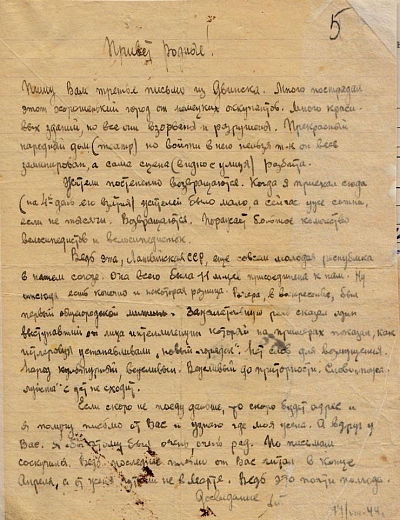 5
Привет родная!
Пишу Вам третье письмо из Двинска. Много пострадал
этот хорошенький город от немецких оккупантов. Много краси-
вых зданий, но все они взорваны и разрушены. Прекрасный
народный дом (театр) но войти в него нельзя т.к он весь
заминирован, а сама сцена (видно с улицы) разбита.
Жители постепенно возвращаются. Когда я приехал сюда
(на 4й день его взятия) жителей было мало, а сейчас уже сотни,
если не тысячи. Возвращаются. Поражает большое количество
велосипедистов и велосипедисток.
Ведь эта, Латвийская ССР, еще совсем молодая республика
в нашем союзе. Она всего была 11 присоединена к нам. Ну
отсюда есть конечно и некоторая разница. Вчера, в воскресенье, был
первый общегородской митинг. речь сказал один
выступавший от лица интеллигенции который на примерах показал, как
гитлеровцы устанавливали "новый порядок" Нет слов для возмущения.
Народ вежливый. Вежливый до приторности. Слово
с уст не сходит.
Если скоро не поеду дальше, то скоро будет адрес и
я получу письмо от Вас и узнаю где моя
Вас. Я этому был очень, очень рад. По письмам
соскучился. Ведь последние письма от Вас читал в конце
Апреля, а от в Марте. Ведь это почти полгода.
До свидания
44г.